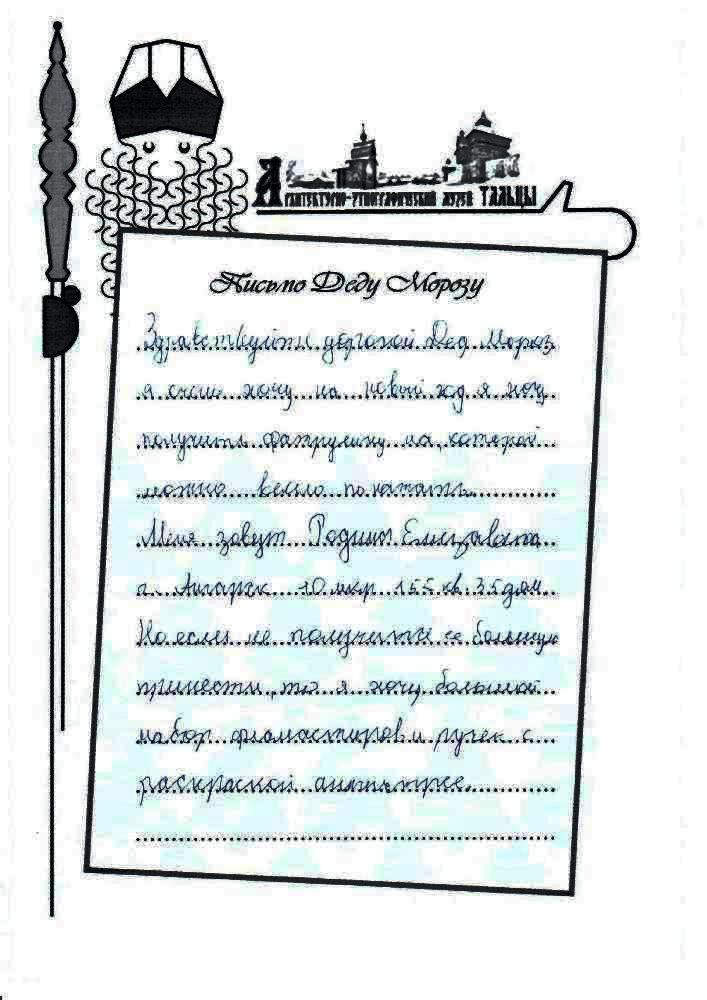 Архитектурно-этнографический музей ТАЛЬЦЫ
Письмо Деду Морозу
Здравствуйти дорогой Дед Мороз
я очень хочу на новый год я хочу
получить фатрушку на которой
можно весило покатать.
Меня зовут Родина Елизавета
г. Ангарск 10 мкр 155 кв 35 дом
Но если не получится её большую
принести, то я хочу большой
набор фломастиров и ручек с
раскраской антистрес.